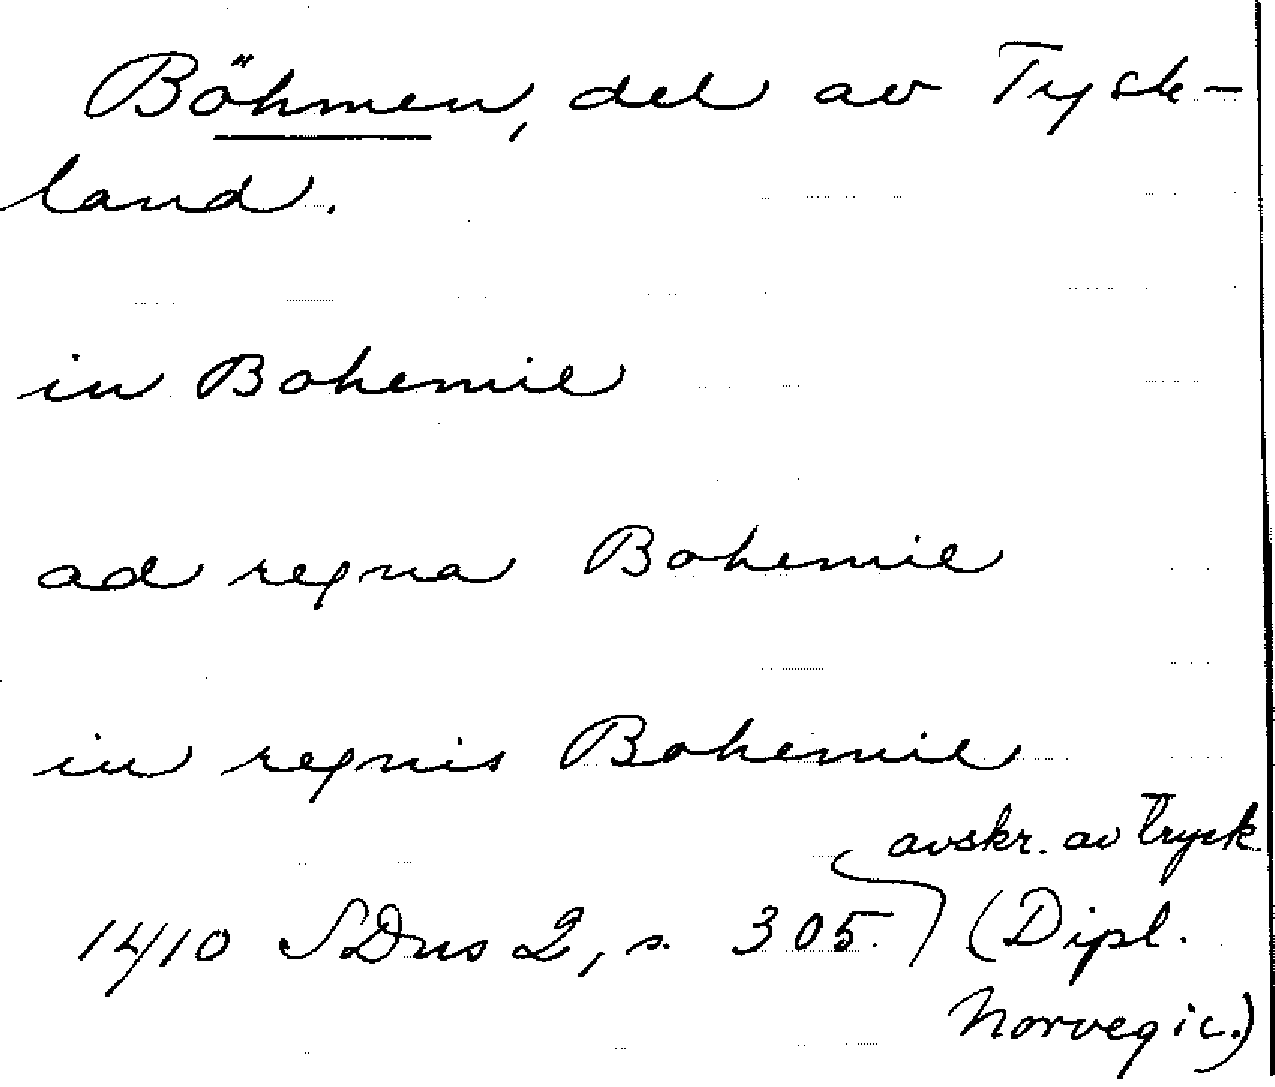 Böhmen, del av Tysk-
land.
in Bohemie
ad regna Bohemie
in regnis Bohemie
avskr. av tryck
1410 SDns 2, s. 305. (Dipl.
Norvegic.)